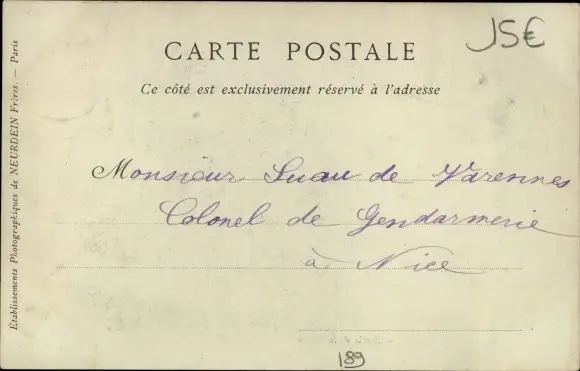 15€
CARTE POSTALE
Ce côté est exclusivement réservé à l'adresse
Monsieur Luau de Varennes
Colonel de Gendarmerie
à Nice
189
Établissements Photographiques de NEURDEIN Frères. — Paris